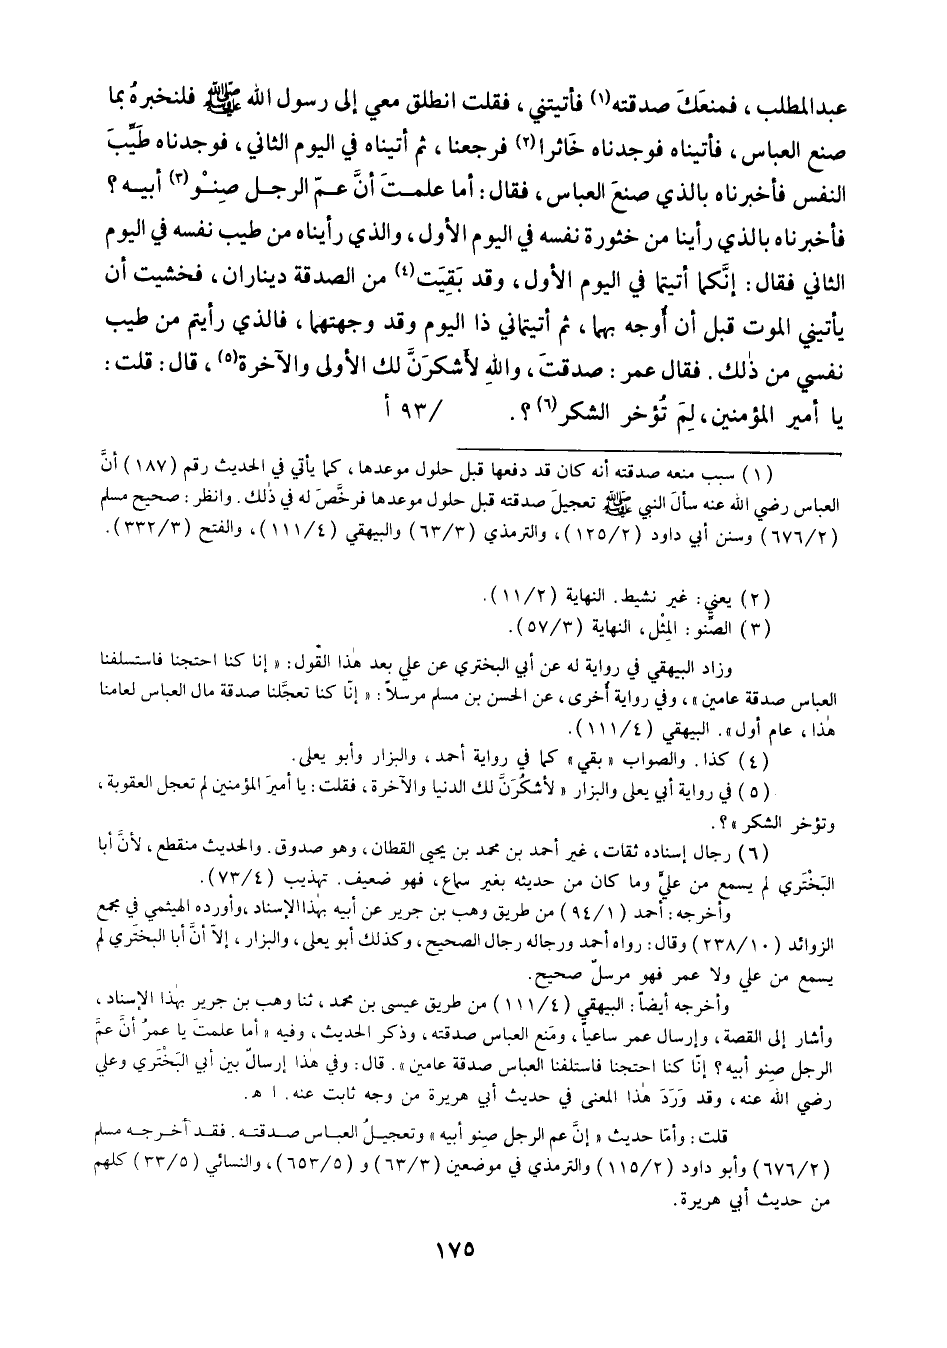 عبدالمطلب ، فمنعَكَ صدقته(١) فأتيتني ، فقلت انطلق معي إلى رسول الله ﷺ فلنخبرهُ بما
صنع العباس ، فأتيناه فوجدناه خَاثرا(٢) فرجعنا ، ثم أتيناه في اليوم الثاني ، فوجدناه طَيِّبَ
النفس فأخبرناه بالذي صنعَ العباس ، فقال : أما علمتَ أنَّ عمّ الرجل صِنْو(٣) أبيه ؟
فأخبرناه بالذي رأينا من خثورة نفسه في اليوم الأول ، والذي رأيناه من طيب نفسه في اليوم
الثاني فقال : إنَّكما أتيتما في اليوم الأول ، وقد بَقِيَت(٤) من الصدقة ديناران ، فخشيت أن
يأتيني الموت قبل أن أُوجه بهما ، ثم أتيتماني ذا اليوم وقد وجهتهما ، فالذي رأيتم من طيب
نفسي من ذٰلك . فقال عمر : صدقتَ ، واللهِ لأشكرَنَّ لك الأولى والآخرة(٥) ، قال : قلت :
يا أمير المؤمنين ، لِمَ تُؤخر الشكر(٦) ؟ . /٩٣ أ
(١) سبب منعه صدقته أنه كان قد دفعها قبل حلول موعدها ، كما يأتي في الحديث رقم (١٨٧) أنَّ
العباس رضي الله عنه سألَ النبي ﷺ تعجيلَ صدقته قبل حلول موعدها فرخَّصَ له في ذلك . وانظر : صحيح مسلم
(٦٧٦/٢) وسنن أبي داود (١٢٥/٢) ، والترمذي (٦٣/٣) والبيهقي (١١١/٤) ، والفتح (٣٣٢/٣) .
(٢) يعني : غير نشيط . النهاية (١١/٢) .
(٣) الصِّنو : المِثْل ، النهاية (٥٧/٣) .
وزاد البيهقي في رواية له عن أبي البختري عن علي بعد هٰذا القول : « إنا كنا احتجنا فاستسلفنا
العباس صدقة عامين » ، وفي رواية أُخرى ، عن الحسن بن مسلم مرسلاً : « إنّا كنا تعجَّلنا صدقة مال العباس لعامنا
هٰذا ، عام أول » . البيهقي (١١١/٤) .
(٤) كذا . والصواب « بقي » كما في رواية أحمد ، والبزار وأبو يعلى .
(٥) في رواية أبي يعلى والبزار « لأشكُرَنَّ لك الدنيا والآخرة ، فقلت : يا أميرَ المؤمنين لم تعجل العقوبة ،
وتؤخر الشكر » ؟ .
(٦) رجال إسناده ثقات ، غير أحمد بن محمد بن يحيى القطان ، وهو صدوق . والحديث منقطع ، لأنَّ أبا
البَخْتَري لم يسمع من عليٍّ وما كان من حديثه بغير سماع ، فهو ضعيف . تهذيب (٧٣/٤) .
وأخرجه : أحمد (٩٤/١) من طريق وهب بن جرير عن أبيه بهٰذا الإسناد ، وأورده الهيثمي في مجمع
الزوائد (٢٣٨/١٠) وقال : رواه أحمد ورجاله رجال الصحيح ، وكذلك أبو يعلى ، والبزار ، إلاّ أنَّ أبا البختَري لم
يسمع من علي ولا عمر فهو مرسلٌ صحيح .
وأخرجه أيضاً : البيهقي (١١١/٤) من طريق عيسى بن محمد ، ثنا وهب بن جرير بهٰذا الإسناد ،
وأشار إلى القصة ، وإرسال عمر ساعياً ، ومَنع العباس صدقته ، وذكر الحديث ، وفيه « أما علمتَ يا عمرُ أنَّ عمَّ
الرجل صِنو أبيه ؟ إنّا كنا احتجنا فاستلفنا العباس صدقة عامين » . قال : وفي هٰذا إرسالٌ بين أبي البَخْتَري وعلي
رضي الله عنه ، وقد وَرَدَ هٰذا المعنى في حديث أبي هريرة من وجه ثابت عنه . ا هـ .
قلت : وأمّا حديث « إنَّ عم الرجل صِنو أبيه » وتعجيلُ العباس صدقته . فقد أخرجه مسلم
(٦٧٦/٢) وأبو داود (١١٥/٢) والترمذي في موضعين (٦٣/٣) و (٦٥٣/٥) ، والنسائي (٣٣/٥) كلهم
من حديث أبي هريرة .
١٧٥